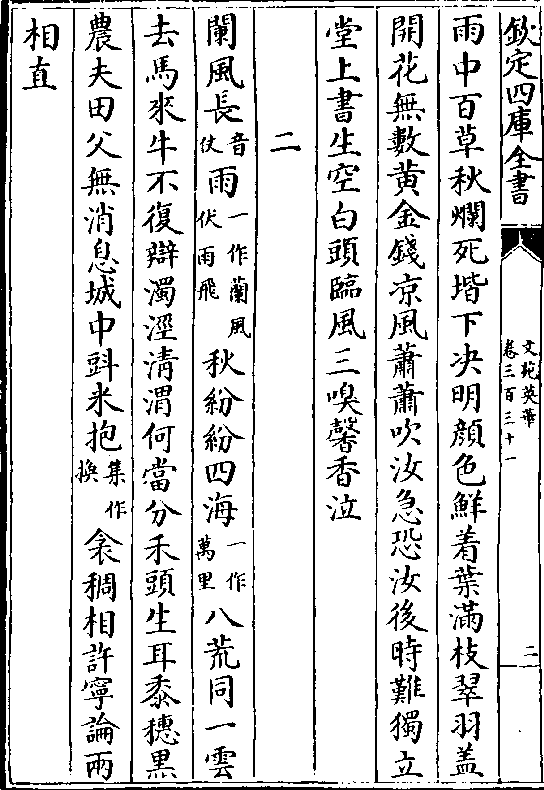 欽定四庫全書
文苑英華
卷三百三十一
二
雨中百草秋爛死堦下决明顔色鮮着葉滿枝翠羽盖
開花無數黄金錢凉風蕭蕭吹汝急恐汝後時難獨立
堂上書生空白頭臨風三嗅馨香泣
二
闌風長音仗雨一作蘭風伏雨飛秋紛紛四海一作萬里八荒同一雲
去馬來牛不復辯濁涇清渭何當分禾頭生耳黍穗黒
農夫田父無消息城中㪷米抱集作換衾稠相許寧論兩
相直